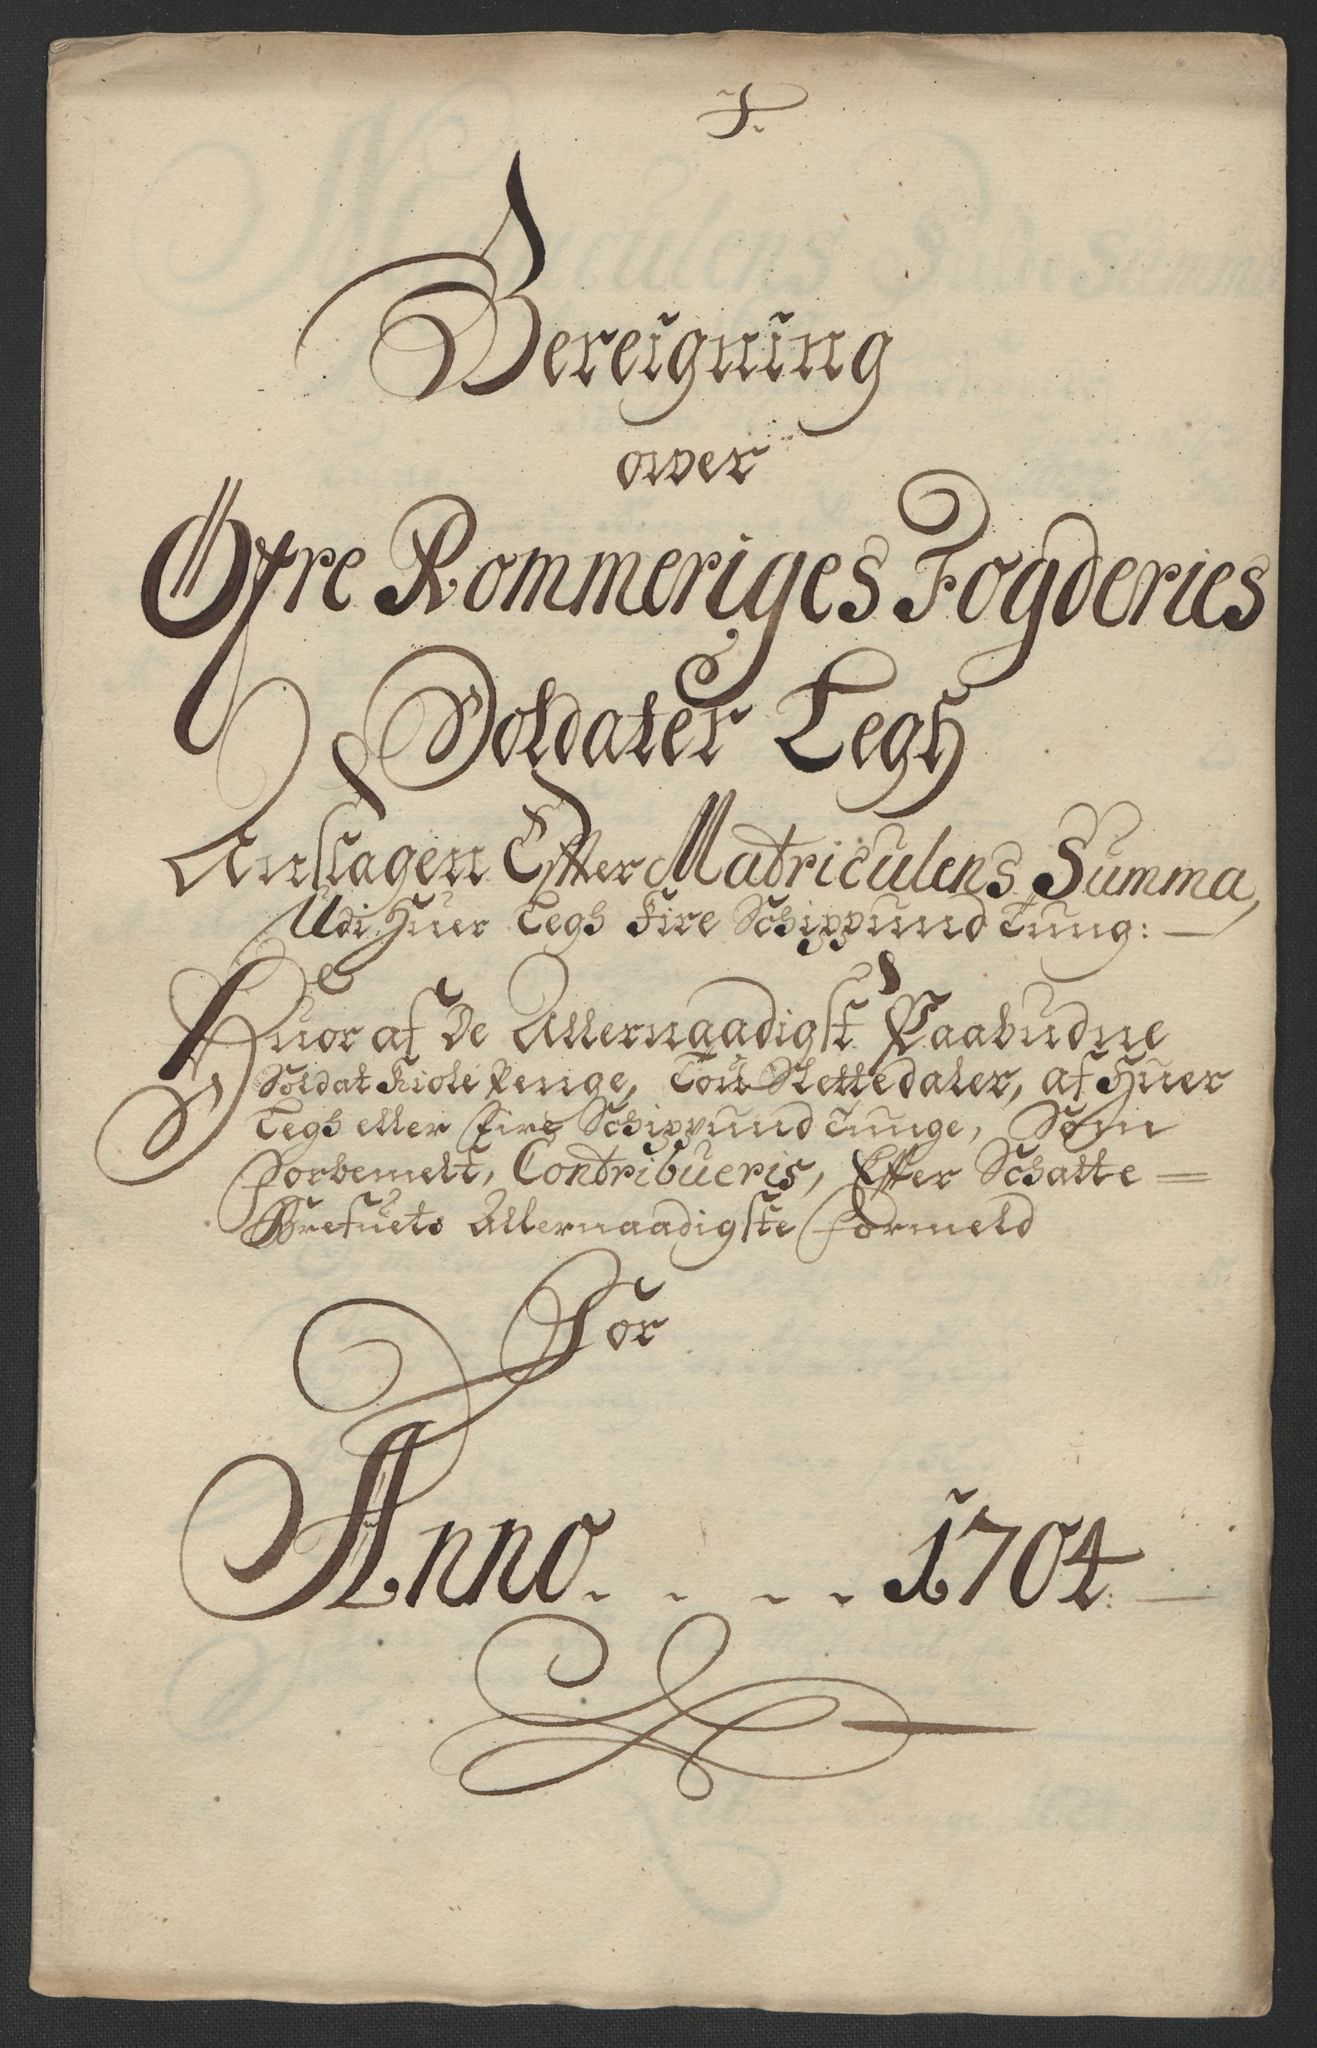 Bereigning
over
Öfre Rommeriges Fogderies
Soldater Legh
Anslagen Efter Matriculens Summa,
Udi Huer Legh Fire Schippund Tung:
Huor af De Allernaadigst Paabudne
Soldat Kiole Penge, Tou Slettedaler, af Huer
Legh eller Fire Schippund Tunge, Som
forbemelt, Contribueris, Efter Schatte=
Brefuets Allernaadigste formeld
For
Anno.... 1704.